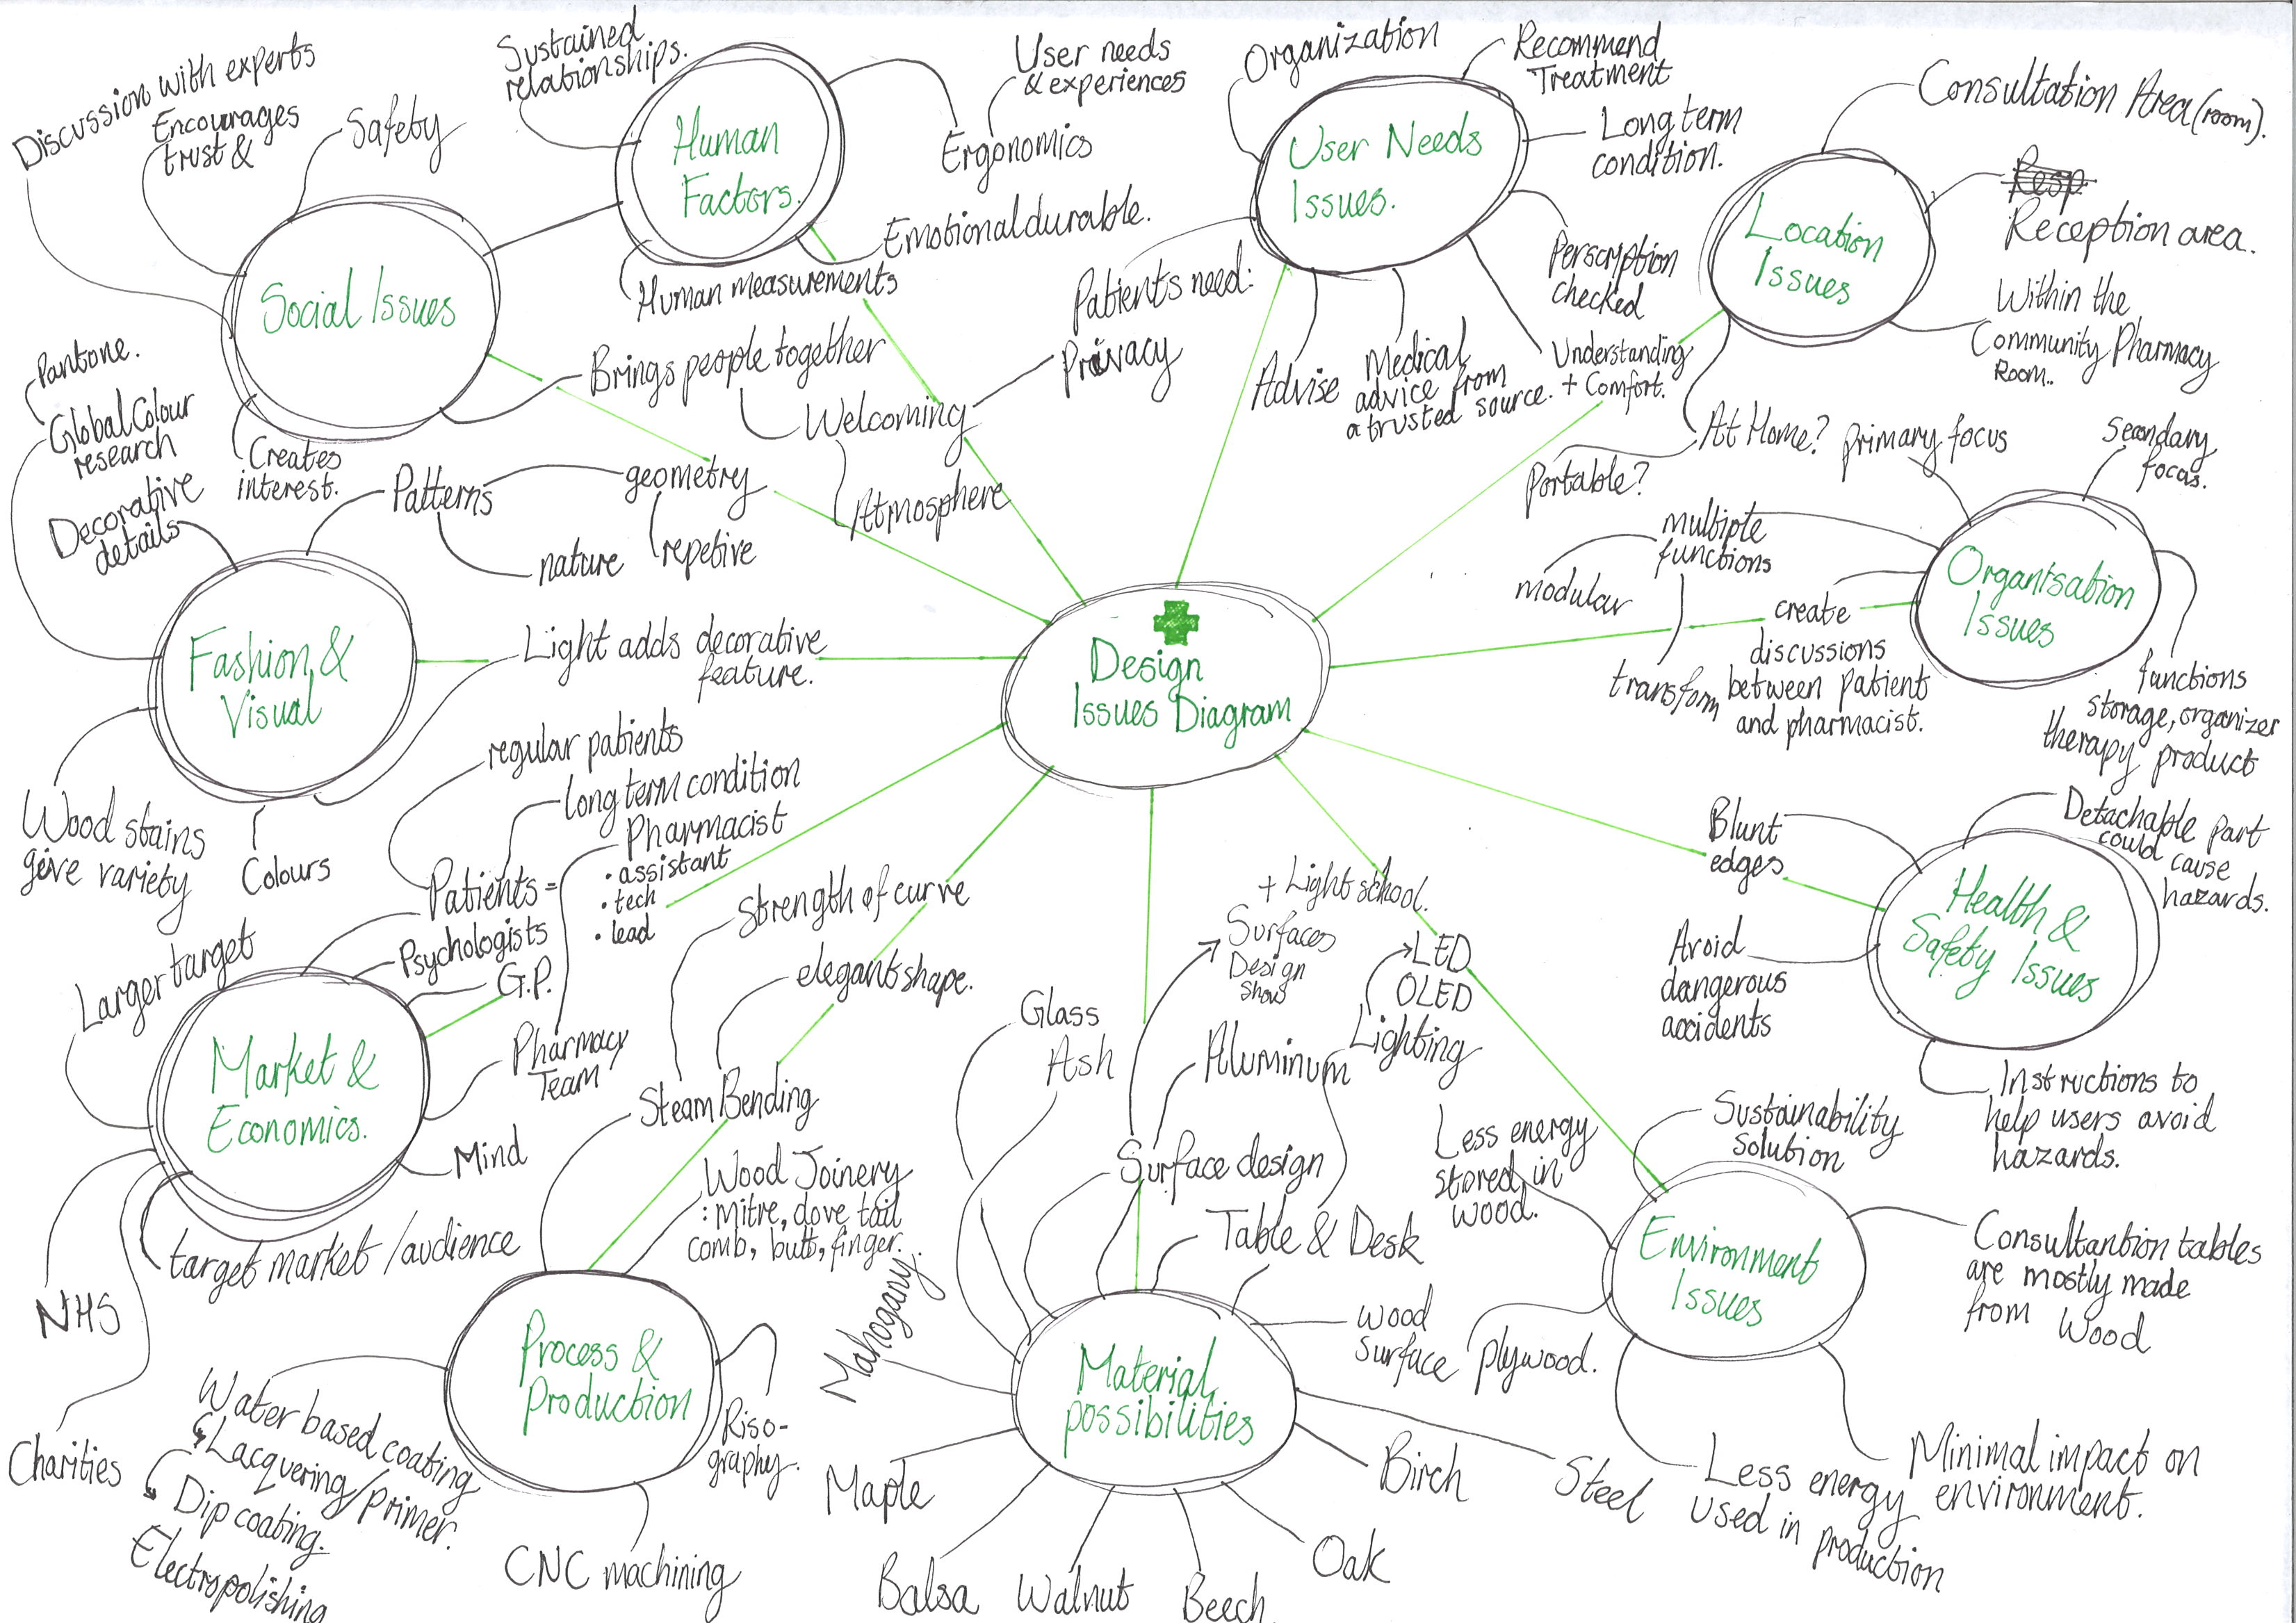 Design
Issues Diagram
Social Issues
Discussion with experts
Encourages
trust &
Safety
Creates
interest.
Brings people together
Welcoming
Atmosphere
Privacy
Human
Factors.
Sustained
relationships.
User needs
& experiences
Ergonomics
Emotional durable.
Human measurements
User Needs
Issues.
Organization
Recommend
Treatment
Long term
condition.
Perscription
checked
Understanding
+ Comfort.
Medical
advice from
a trusted source.
Advise
Patients need:
Location
Issues
Consultation Area (room).
Resp
Reception area.
Within the
Community Pharmacy
Room..
At Home?
Portable?
Organisation
Issues
Primary focus
Secondary
focas.
multiple
functions
modular
transform
create
discussions
between patient
and pharmacist.
functions
storage, organizer
therapy product
Health &
Safety Issues
Blunt
edges
Detachable part
could cause
hazards.
Avoid
dangerous
accidents
Instructions to
help users avoid
hazards.
Environment
Issues
Sustainability
Solution
Less energy
stored in
wood.
Consultantion tables
are mostly made
from Wood
plywood.
Less energy
used in production
Minimal impact on
environment.
Material
possibilities
Glass
Ash
Surface design
Surfaces
Design
Show
+ Light school.
Aluminum
LED
OLED
Lighting
Table & Desk
Wood
Surface
Steel
Birch
Oak
Beech
Walnut
Balsa
Maple
Mahogany.
Process &
Production
Steam Bending
Strength of curve
elegant shape.
Wood Joinery
: mitre, dove tail
comb, butt, finger.
Riso-
graphy.
CNC machining
Water based coating
Lacquering/primer.
Dip coating.
Electropolishing
Market &
Economics.
Larger target
Patients =
regular patients
long term condition
Psychologists
G.P.
Pharmacy
Team
Pharmacist
• assistant
• tech
• lead
Mind
target market / audience
NHS
Charities
Fashion &
Visual
Pantone.
Global Colour
research
Decorative
details
Patterns
geometry
repetive
nature
Light adds decorative
feature.
Wood stains
give variety
Colours